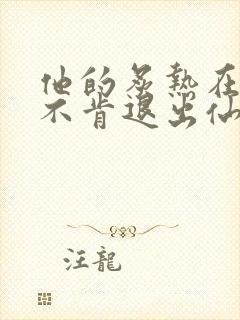 他的炙熱在
不肯退出仙
汪龍